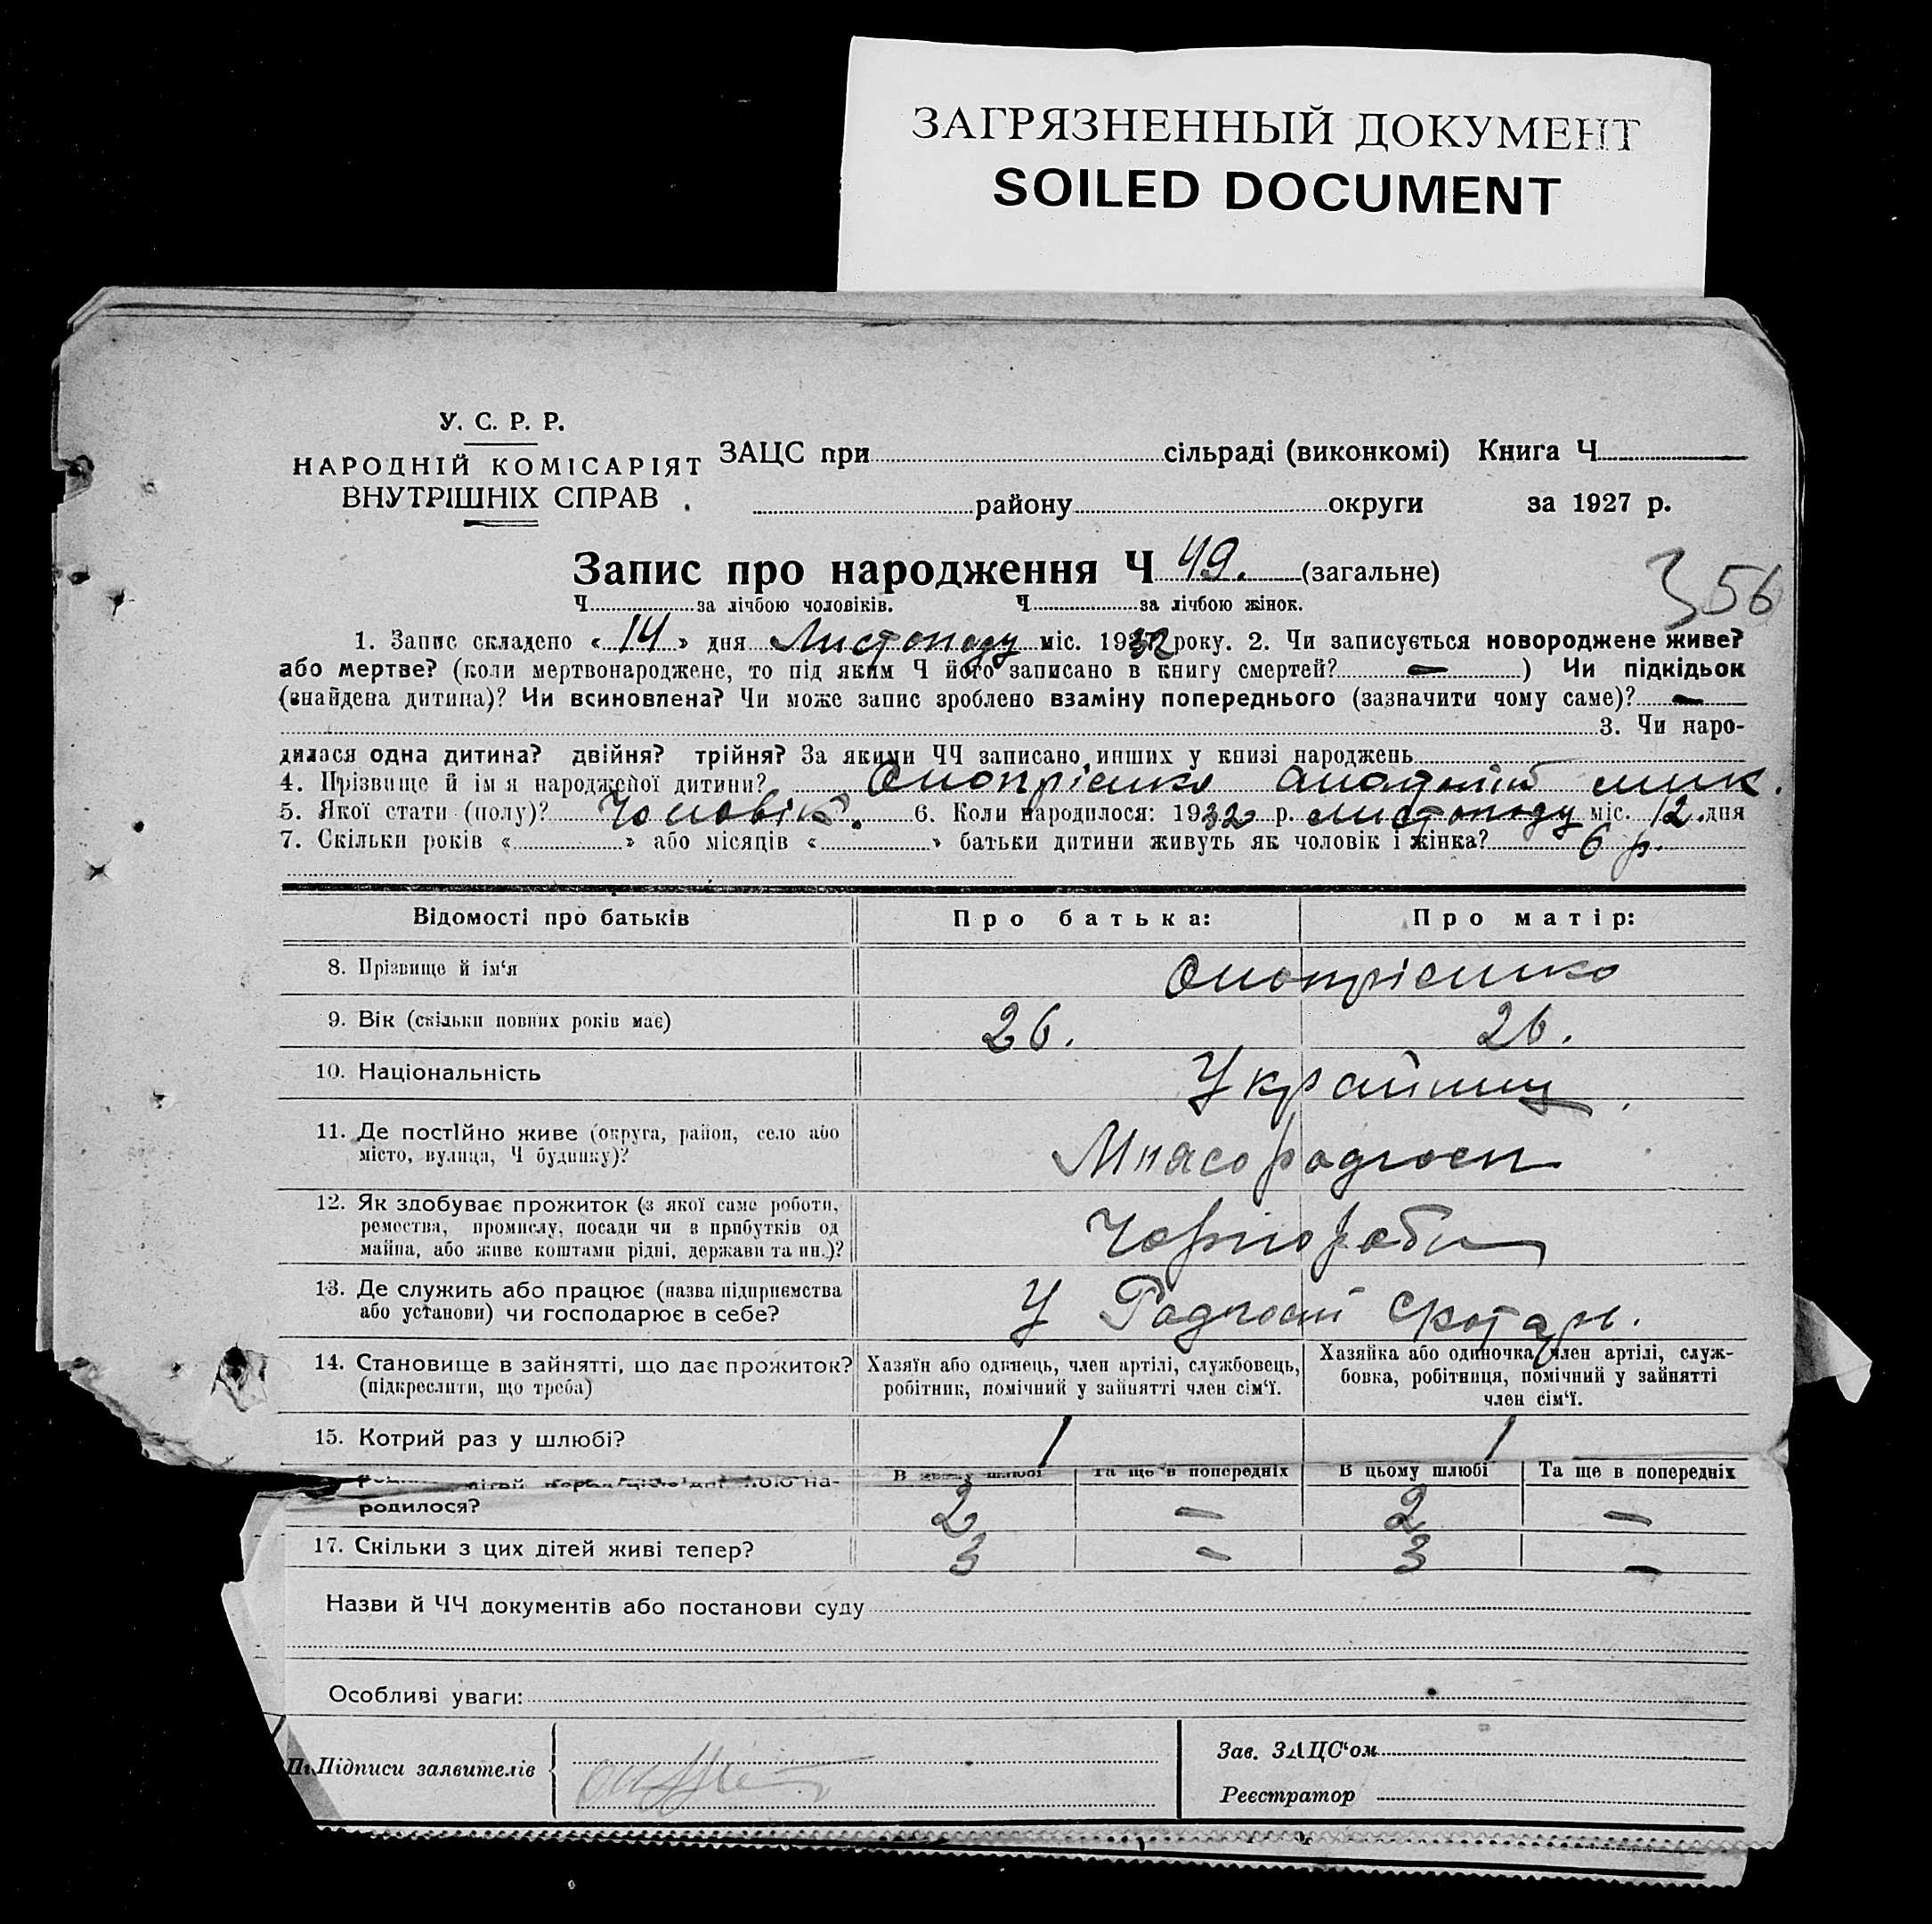 ЗАГРЯЗНЕННЫЙ ДОКУМЕНТ
SOILED DOCUMENT
У. С. Р. Р.
НАРОДНІЙ КОМІСАРІЯТ
ВНУТРІШНІХ СПРАВ
ЗАЦС при сільраді (виконкомі) Книга Ч
району округи за 1927 р.
Запис про народження Ч 49. (загальне)
356
Ч за лічбою чоловіків. Ч за лічбою жінок.
1. Запис складено « 14 » дня Листопаду міс. 1932 року. 2. Чи записується новороджене живе?
або мертве? (коли мертвонароджене, то під яким Ч його записано в книгу смертей? — ) Чи підкідьок
(знайдена дитина)? Чи всиновлена? Чи може запис зроблено взаміну попереднього (зазначити чому саме)? —
3. Чи наро-
дилася одна дитина? двійня? трійня? За якими ЧЧ записано инших у книзі народжень
4. Прізвище й ім'я народженої дитини? Онопрієнко Анатолій мик.
5. Якої стати (полу)? Чоловік. 6. Коли народилося: 1932 р. Листопаду міс. 12. дня
7. Скільки років « » або місяців « » батьки дитини живуть як чоловік і жінка? 6 р.
Відомості про батьків Про батька: Про матір:
8. Прізвище й ім‘я Онопрієнко
9. Вік (скільки повних років має) 26. 26.
10. Національність Українці
11. Де постійно живе (округа, район, село або
місто, вулиця, Ч будинку)?
12. Як здобуває прожиток (з якої саме роботи,
ремества, промислу, посади чи з прибутків од
майна, або живе коштами рідні, держави та ин.)?
Чорнороби
13. Де служить або працює (назва підприємства
або установи) чи господарює в себе?
У Радгоспі
14. Становище в зайнятті, що дає прожиток?
(підкреслити, що треба)
Хазяїн або одинець, член артілі, службовець,
робітник, помічний у зайнятті член сім‘ї.
Хазяйка або одиночка, член артілі, служ-
бовка, робітниця, помічний у зайнятті
член сім‘ї.
15. Котрий раз у шлюбі? 1 1
В цьому шлюбі Та ще в попередніх В цьому шлюбі Та ще в попередніх
родилося? 2 — 2 —
17. Скільки з цих дітей живі тепер? 3 — 3 —
Назви й ЧЧ документів або постанови суду
Особливі уваги:
Підписи заявителів
Зав. ЗАЦС‘ом
Реєстратор